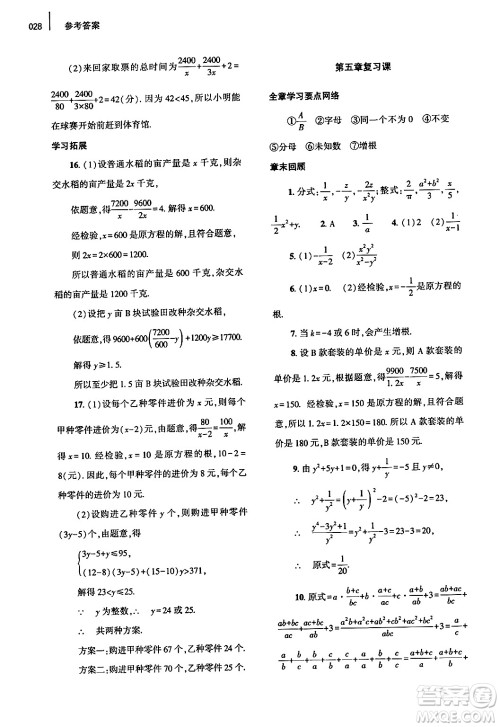 028 参考答案
(2)来回家取票的总时间为2400/x+2400/3x+2=
2400/80+2400/(3×80)+2=42(分). 因为42<45,所以小明能
在球赛开始前赶到体育馆.
学习拓展
16. (1)设普通水稻的亩产量是 x 千克,则杂
交水稻的亩产量是 2x 千克,
依题意,得7200/x-9600/2x=4.
经检验,x=600是原方程的解,
则2x=2×600=1200.
所以普通水稻的亩产量是600千克,杂交水
稻的亩产量是1200千克.
(2)设把 y 亩 B 块试验田改种杂交水稻.
依题意,得9600+600(7200/600-y)+1200y≥17700.
解得 y≥1.5.
所以至少把1.5亩B块试验田改种杂交水稻.
17. (1)设每个乙种零件进价为 x 元,则每个
甲种零件进价为(x-2)元,由题意,得80/(x-2)=100/x,解
得 x=10. 经检验,x=10是原方程的根,10-2=
8(元). 所以每个甲种零件的进价为8元,每个乙种
零件的进价为10元.
(2)设购进乙种零件 y 个,则购进甲种零件
(3y-5)个,由题意,得
{3y-5+y≤95,
(12-8)(3y-5)+(15-10)y>371.
解得23<y≤25.
∵ y为整数,∴ y=24或25.
∴ 共两种方案.
方案一:购进甲种零件67个,乙种零件24个.
方案二:购进甲种零件70个,乙种零件25个.
第五章复习课
全章学习要点网络
①A/B ②字母 ③同一个不为0 ④不变
⑤分母 ⑥未知数 ⑦增根
章末回顾
1. 分式:
4. (1)2/x (2)
5. (1) (2)
6. (1)x=0. (2)经检验,x=1不是原方程的
根.
7. 当 k=-4或6时,会产生增根.
8. 设B款套装的单价是 x 元,则A款套装的
单价是1.2x元,由题意,得9900/1.2x-7500/x=5,解得
x=150. 经检验,x=150是原方程的解,且符合题
意,所以1.2x=1.2×150=180. 所以A款套装的
单价是180元、B款套装的单价是150元.
9. 由 y²+5y+1=0,得 y+1/y=-5,且 y≠0.
∴ y²+1/y²=(y+1/y)²-2=(-5)²-2=23.
∴ (y⁴-3y²+1)/y²=y²+1/y²-3=23-3=20.
∴ 原式=1/20.
10. 原式=